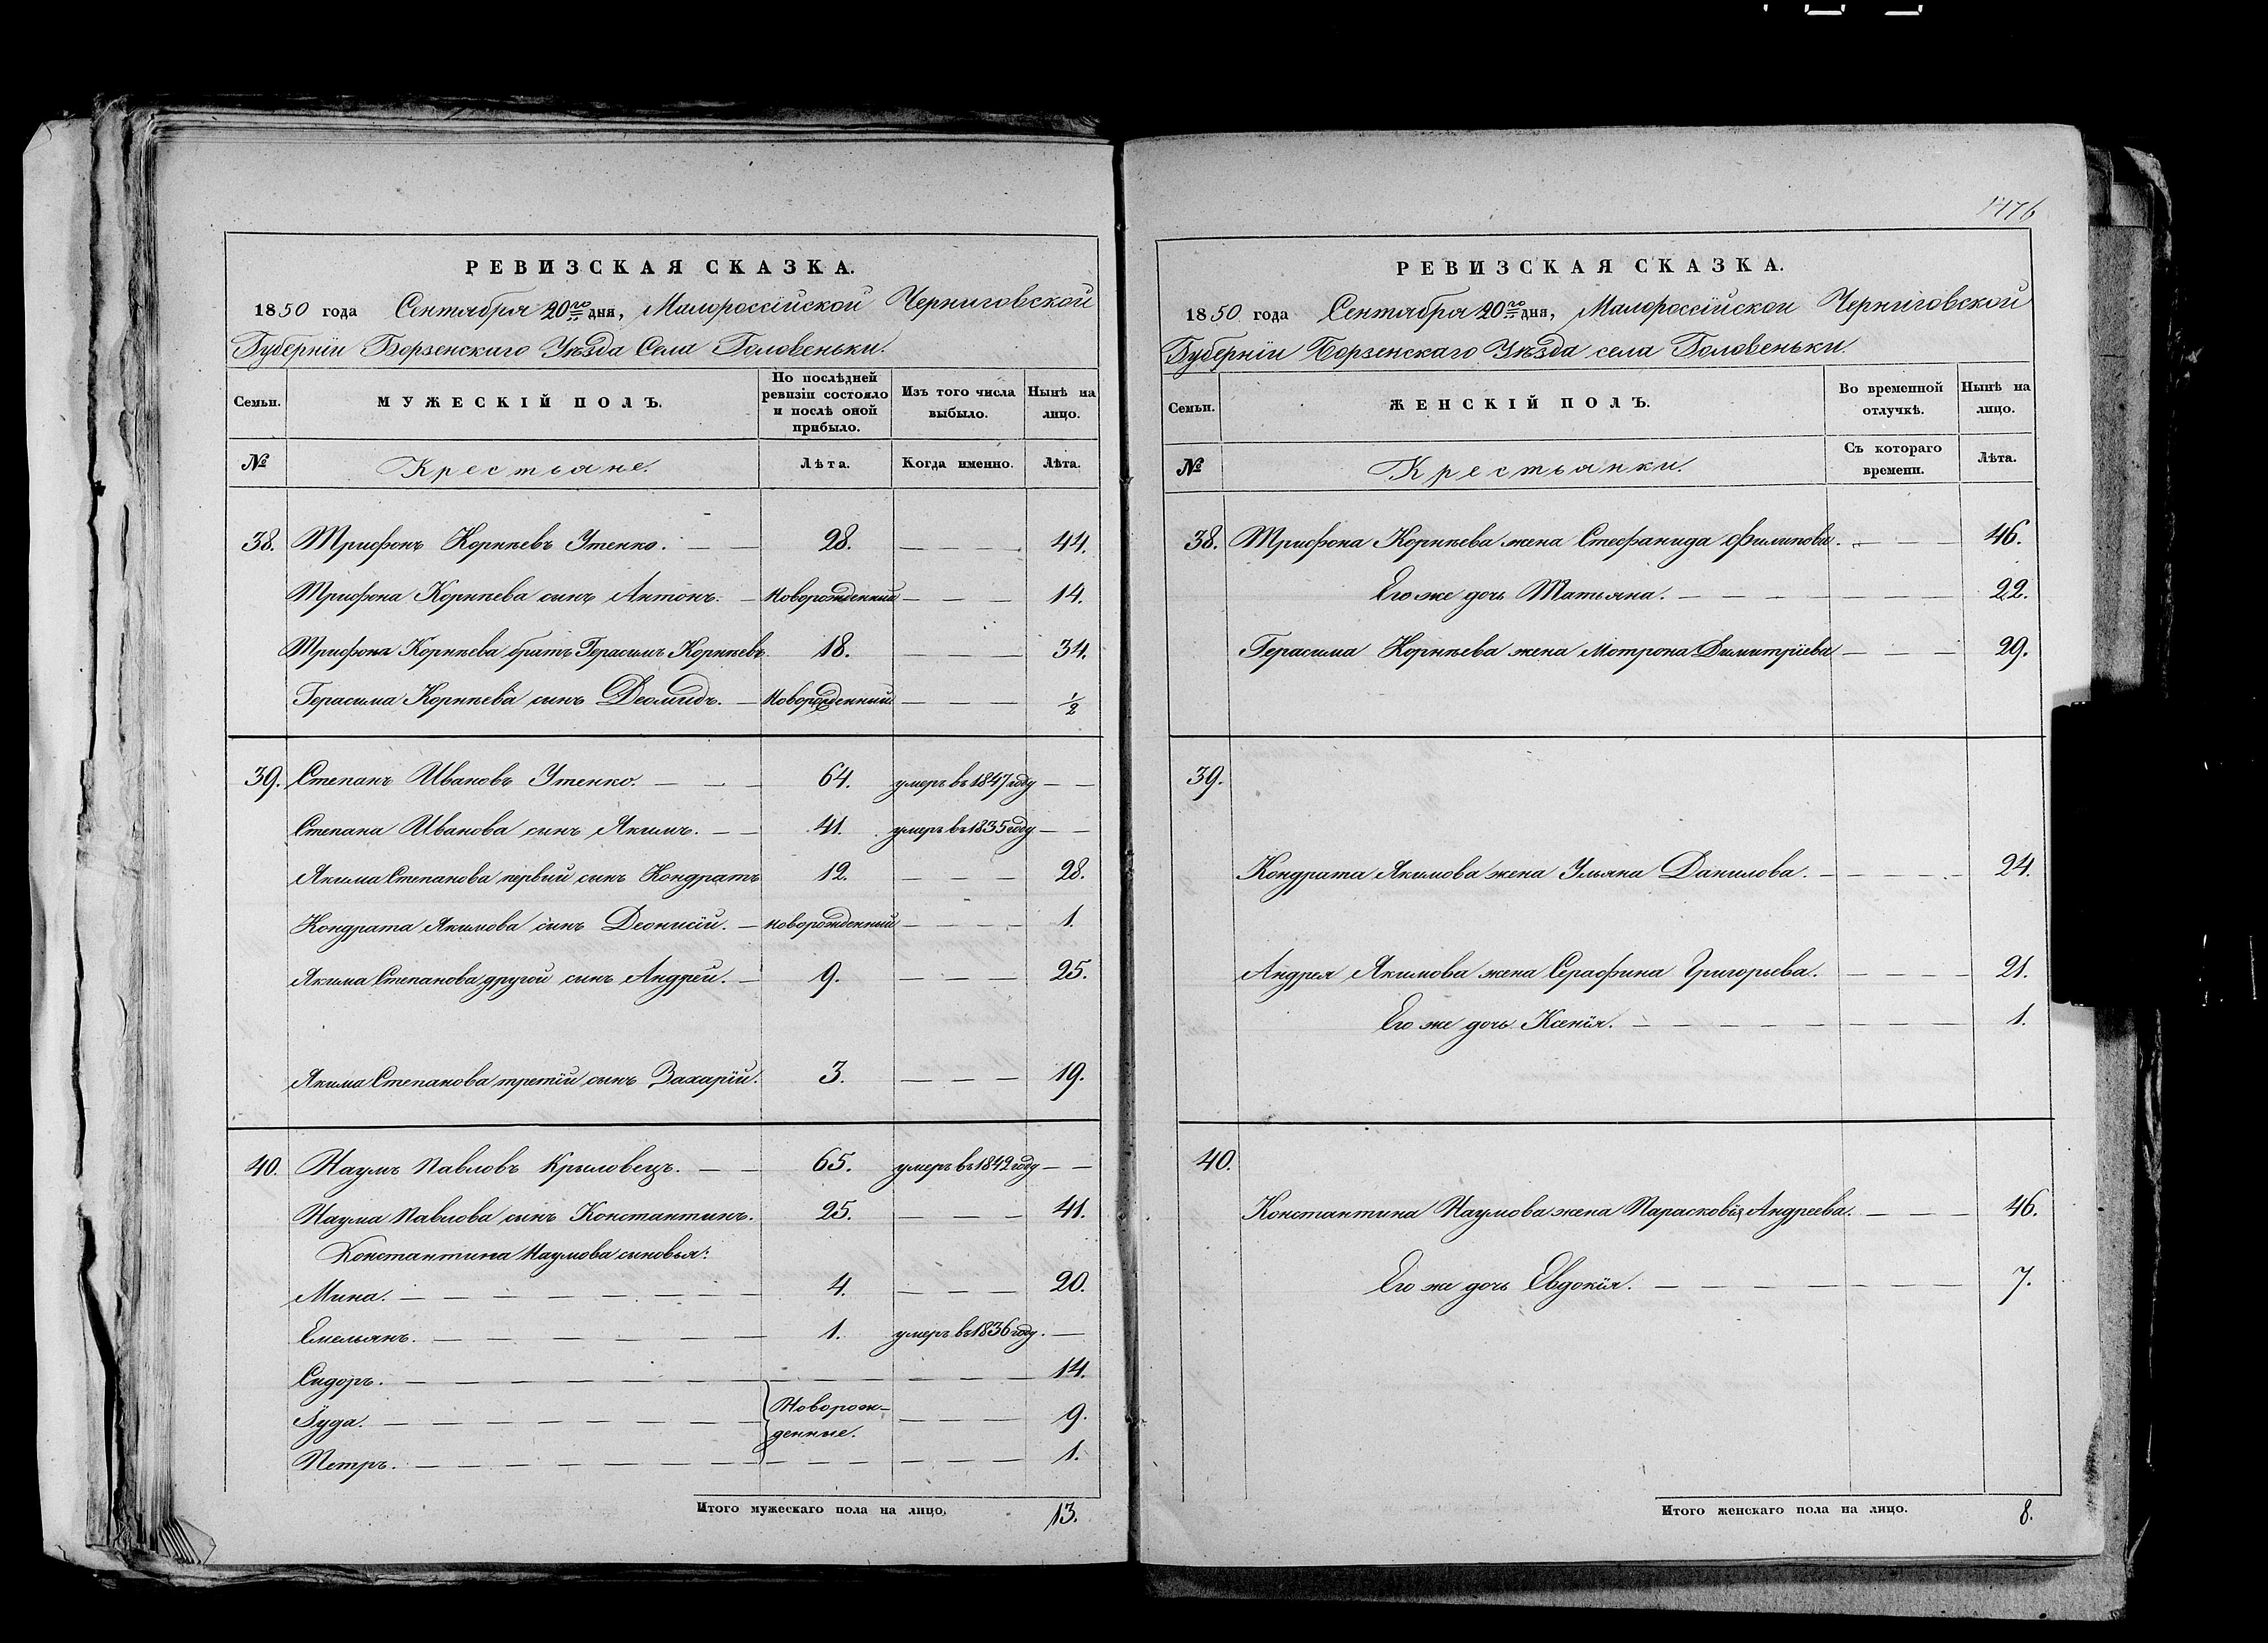 РЕВИЗСКАЯ СКАЗКА.
1850 года Сентября 20го дня, Малороссійской Черниговской
Губерніи Борзенскаго Уѣзда Села Головеньки.
Семьи. МУЖЕСКІЙ ПОЛЪ. По послѣдней ревизіи состояло и послѣ оной прибыло. Изъ того числа выбыло. Нынѣ на лицо.
№ Крестьяне. Лѣта. Когда именно. Лѣта.
38. Трифонъ Корнѣевъ Утенко. — — 28. — — — 44.
Трифона Корнѣева сынъ Антонъ. — Новорожденный — — — 14.
Трифона Корнѣева братъ Герасимъ Корнѣевъ 18. — — — 34.
Герасима Корнѣева сынъ Деомидъ. — Новорожденный — — — 1/2
39. Степанъ Ивановъ Утенко. — — — 64. умеръ въ 1847 году — —
Степана Иванова сынъ Якимъ. — — 41. умеръ въ 1835 году — —
Якима Степанова первый сынъ Кондратъ 12. — — — 28.
Кондрата Якимова сынъ Деонисій. — новорожденный — — — — 1.
Якима Степанова другой сынъ Андрей. — 9. — — — 25.
Якима Степанова третій сынъ Захарій. 3. — — — 19.
40. Наумъ Павловъ Крыловецъ. — — 65. умеръ въ 1842 году — —
Наума Павлова сынъ Константинъ. 25. — — — 41.
Константина Наумова сыновья:
Мина. — — — — — — — — 4. — — — 20.
Емельянъ. — — — — — — — 1. умеръ въ 1836 году. —
Сидоръ. — — — — — — — — — — — — — 14.
Іуда. — — — — — — — — Новорож- — — — 9.
денные.
Петръ. — — — — — — — — — — — — — 1.
Итого мужескаго пола на лицо, 13.
РЕВИЗСКАЯ СКАЗКА.
1850 года Сентября 20го дня, Малороссійской Черниговской
Губерніи Борзенскаго Уѣзда села Головеньки.
Семьи. ЖЕНСКІЙ ПОЛЪ. Во временной отлучкѣ. Нынѣ на лицо.
№ Крестьянки. Съ котораго времени. Лѣта.
38. Трифона Корнѣева жена Стефанида Филипова. — — — 46.
Его же дочь Татьяна. — — — — — — — 22.
Герасима Корнѣева жена Мотрона Димитріева — — — 29.
39.
Кондрата Якимова жена Ульяна Данилова. — — — — — 24.
Андрея Якимова жена Серафина Григорьева. — — — — 21.
Его же дочь Ксенія. — — — — — — — — 1.
40.
Константина Наумова жена Парасковія Андреева. — — — 46.
Его же дочь Евдокія. — — — — — — — 7.
Итого женскаго пола на лицо. 8.